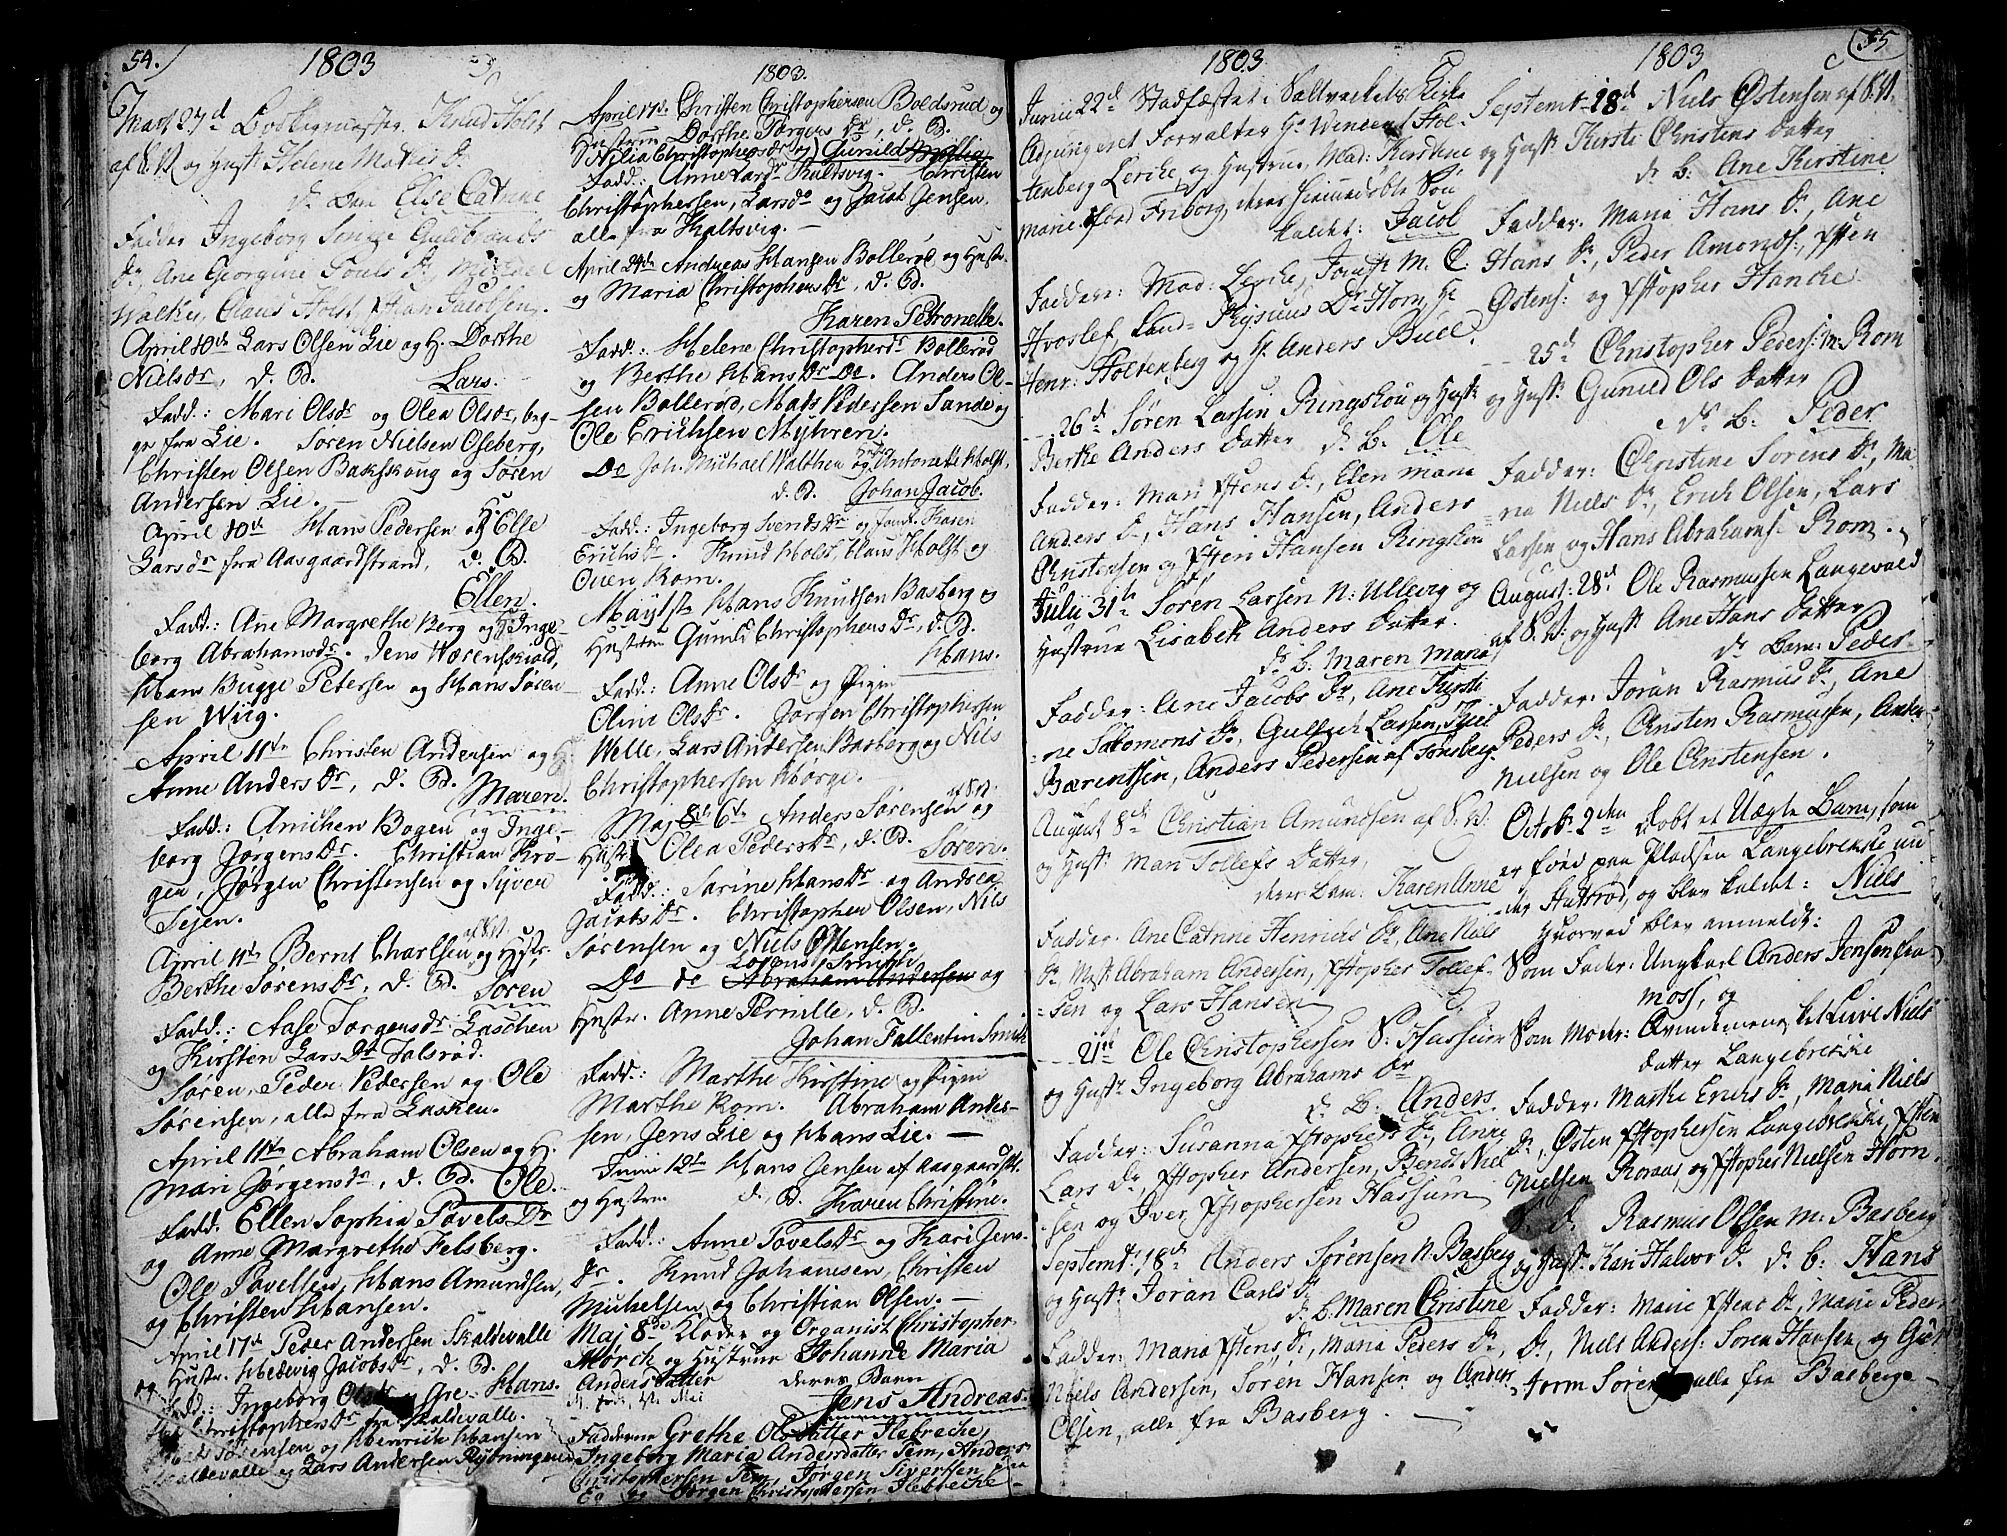 54.
1803
Mart 27d Bødkermester Knud Holst
af S.V. og Hust. Helene Mathis Dr
Dr Barn Else Catrine
Fadder Ingeborg Guldbrands
Dr, Ane Georgine Fouls Dr, Michael
Walther, Claus Holst, Johan Jacobsen.
April 10de Lars Olsen Lie og H. Dorthe
Nielsdr, d. B. Lars.
Fadd.: Mari Olsdr og Olea Olsdr, beg-
ge fra Lie. Søren Nielsen Oseberg,
Christen Olsen Bakskoug og Søren
Andersen Lie. —
April 10de Hans Pedersen og H. Else
Larsdr fra Aasgaardstrand, d. B.
Ellen.
Fadd.: Ane Margrethe Berg og Inge-
borg Abrahamsdr. Jens Wærenskiold,
Hans Bugge Petersen og Hans Søren-
sen Wiig.
April 11te Christen Andersen og H.
Anne Anders dr, d. B. Maren.
Fadd.: Anichen Bogen og Inge-
borg Jørgensdr. Christian Krø-
gen, Jørgen Christensen og Syver
Tejen.
April 11te Bernt Charlsen af S.V. og Hustr.
Berthe Sørensdr, d. B. Søren
Fadd.: Aase Torgersdr Laschen
og Kirsten Larsdr Jalsrød.
Søren, Peder Pedersen og Ole
Sørensen, alle fra Lasken.
April 11te Abraham Olsen og H.
Mari Jørgensdr, d. B. Ole.
Fadd. Ellen Sophia Povels Dr
og Anne Margrethe Felsberg.
Ole Povelsen, Hans Amundsen,
og Christen Hansen.
April 17de Peder Andersen Skaldevalle
og Hustr. Hedevig Jacobsdr, d. B. Hans.
Fadd.: Ingeborg
Christophersdr fra Skaldevalle.
Sørensen og Henrich Hansen
Skaldevalle og Lars Andersen Rybningen
1803.
April 17d. Christen Christophersen Boldsrud og
Hustrue Dorthe Torgersdr, d. B.
Nilia Christophersdr og Gunild
Fadd.: Anne Larsdr Kaltsvig. Christen
Christophersen, Lars do og Jacob Jensen.
alle fra Kaltsvig. —
April 24de Andreas Hansen Bollerød og Hustr.
og Maria Christophersdr, d. B.
Karen Petronelle.
Fadd.: Helene Christophersdr Bollerød
og Berthe Hansdr Do. Anders Ol-
sen Bollerød, Mats Pedersen Sande og
Ole Erichsen Myhren.
Do Joh. Michael Walther og Antonette Holst,
d. B. Johan Jacob.
Fadd.: Ingeborg Svendsdr og Karen
Erichsdr. Knud Hols, Claus Holst og
Ouen Rom.
May 1ste Hans Knutsen Basberg og
Hustrue Gunild Christophersdr, d. B.
Hans.
Fadd.: Anne Olsdr og Pigen
Oline Olsdr. Jørgen Christophersen
Welle, Lars Andersen Basberg og Nils
Christophersen Hørge.
Maj 6te Anders Sørensen af S.V. og
Hustr. Olea Pedersdr, d. B. Søren.
Fadd.: Sarine Hansdr og Andrea
Jacobsdr. Christopher Olsen, Nils
Sørensen og Niels Østensen.
Do de Lorens Smith Abraham Andersen og
Hustr. Anne Pernille, d. B.
Johan Fallentin Smith
Fadd.: Marthe Kirstine og Pigen
Marthe Rom. Abraham Ander-
sen, Jens Lie og Hans Lie. —
Junii 12te Hans Jensen af Aasgaardst.
og Hustrue d. B. Karen Christine.
Fadd.: Anne Povelsdr og Kari Jens-
dr. Knud Johansen, Christen
Michelsen og Christian Olsen. —
Maj 8de Klokker og Organist Christopher
Mørch og Hustrue Johanne Maria
Anders datter deres Barn
Jens Andreas.
Fadderne Grethe Ols datter Flebreche,
Ingeborg Maria Andersdatter Tem, Anders
Christophersen Tem, Jørgen Sivertsen
og Jørgen Christophersen Flebreche
1803
Junii 22d Stadfæstet i Saltværkets Kirke
Adjungeret Forvalter Hr Wincents Hol-
tenberg Lerche, og Hustrue, Mad: Kirstine
marie, fød Friborg, deres hiemmedøbte Søn
kaldet: Jacob
Fadder: Mad: Lerche, Jomfr. M. C.
Hvoslef, Land-Physicus Dr Horn, Hr
Henr: Holtenberg og H. Anders Buel.
— 26d Søren Larsen Ringshou og Hust.
Berthe Anders datter d. B. Ole
Fadder: Mari Iffstens Dr, Elen marie
Anders Dr, Hans Hansen, Anders
Christensen og Iffsten Hansen Ringshou
July 31te Søren Larsen N: Ullevig og
Hustrue Lisabeth Anders datter.
Dr B. Maren Maria
Fadder: Ane Jacobs Dr, Ane Kirsti-
ne Salomons Dr, Gullich Larsen, Niels
Bærentsen, Anders Pedersen af Tønsberg.
August 8d Christian Amundsen af S.V:
og Hust. Mari Tollefs datter,
deres Barn: Karen Anne
Fadder: Ane Catrine Henrichs Dr, Ane Niels
Dr, Mst. Abraham Andersen, Xstopher Tollef-
sen og Lars Hansen
— 21de Ole Christophersen S: Hassum
og Hustr. Ingeborg Abrahams Dr
d. B. Anders
Fadder: Susanna Xstophers Dr, Anne
Lars Dr, Xstopher Andersen, Bendt Niel-
sen og Iver Xstophersen Hassum
Septemt: 18d Anders Sørensen N: Basberg
og Hust. Joran Carls Dr
d. B. Maren Christine
Fadder: Maria Iffstens Dr, Maria Peders Dr,
Niels Andersen, Søren Hansen og Anders
Olsen, alle fra Basberg. —
1803
55
Septemt. 18d Niels Østensen af S.V.
og Hust. Kirsti Christens datter
d. B: Ane Kirstine
Fadder: Maria Hans Dr, Ane
Hans Dr, Peder Amonds:, Iffsten
Østens: og Xstopher Hanche
— 25d Christopher Peders: M: Rom
og Hust. Gunild Ols datter
d. B: Peder
Fadder: Christine Sørens Dr, Ma-
ria Niels Dr, Erich Olsen, Lars
Larsen og Hans Abrahams: Rom.
August: 28d Ole Rasmussen Langevald
af S.V: og Hust. Ane Hans datter
d. Barn: Peder
Fadder: Joran Rasmus Dr, Ane
Peders Dr, Christen Rasmussen, Anders
Nielsen og Ole Christensen.
Octob: 2den døbt et Uægte Barn, som
er fød paa Pladsen Langebrekke un-
der Hatsrød, og blev kaldet: Niels
Hvorved blev anmeldt:
Som Fader: Ungkarl Anders Jensen fra
Moss, og
Som Moder: Qvindemennesket Live Niels
datter Langebrekke
Fadder: Marthe Erichs Dr, Maria Niels
Dr, Østen Xstophersen Langebrekke, Iffsten
Nielsen Roraas, og Xstopher Nielsen Horn.
d. Rasmus Olsen M: Basberg
og Hust. Kari Halvor Dr d. B: Hans
Fadder: Marie Iffstens Dr, Marie Peders
Dr, Niels Anders: Søren Hansen, og Gut-
torm Sørens alle fra Basberg —